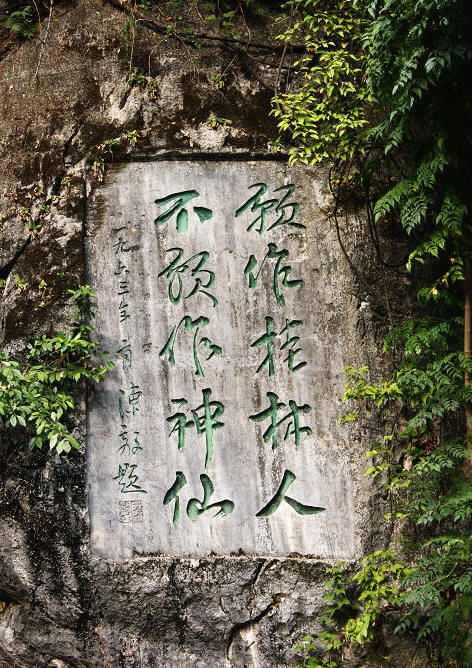 愿作桂林人
不愿作神仙
一九六三年 陳毅題